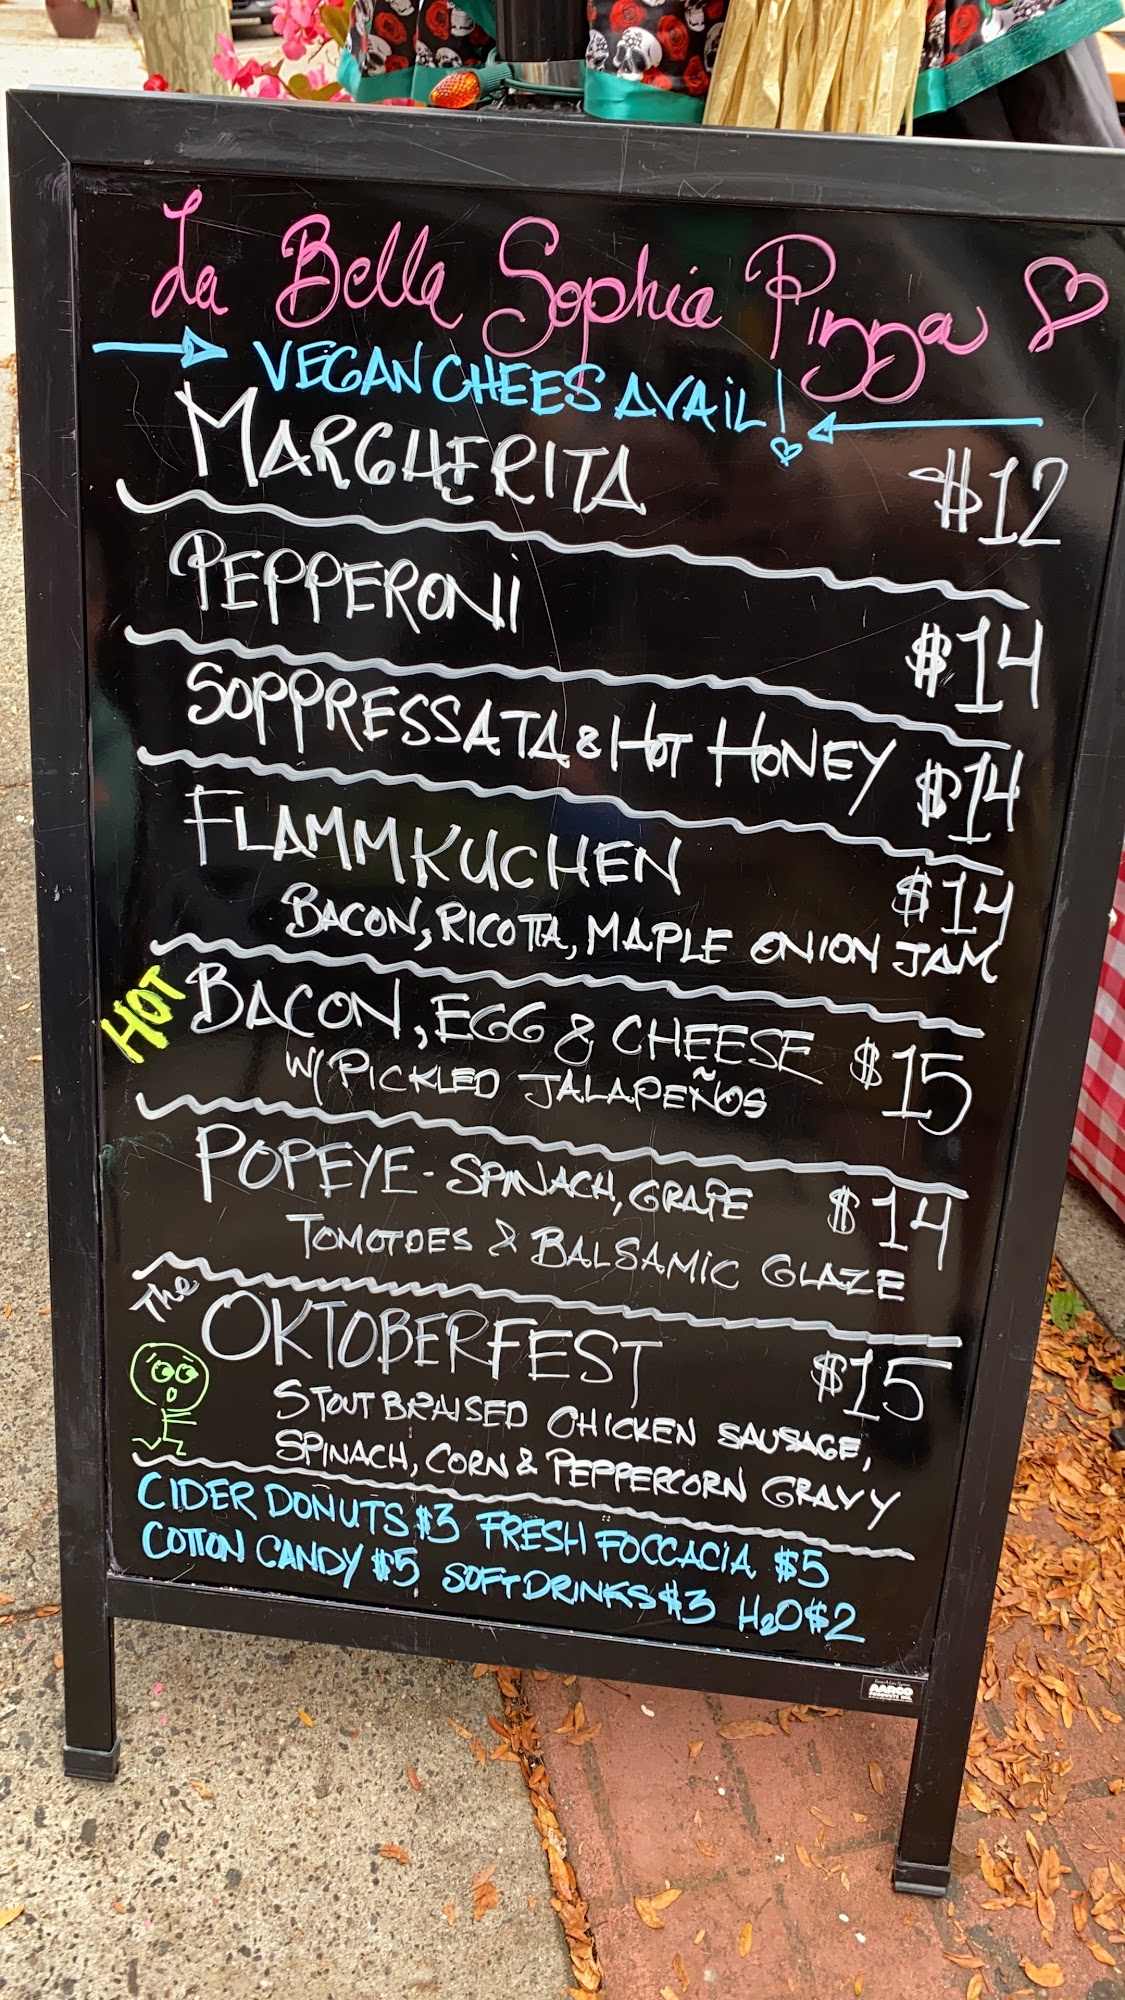 La Bella Sophia Pizza
VEGAN CHEES AVAIL!
MARGHERITA $12
PEPPERONI $14
SOPPRESSATA & HOT HONEY $14
FLAMMKUCHEN $14
BACON, RICOTTA, MAPLE ONION JAM
HOT
BACON, EGG & CHEESE $15
W/ PICKLED JALAPEÑOS
POPEYE - SPINACH, GRAPE $14
TOMOTOES & BALSAMIC GLAZE
The OKTOBERFEST $15
STOUT BRAISED CHICKEN SAUSAGE,
SPINACH, CORN & PEPPERCORN GRAVY
CIDER DONUTS $3 FRESH FOCCACIA $5
COTTON CANDY $5 SOFT DRINKS $3 H2O $2
AARCO
PRODUCTS INC.